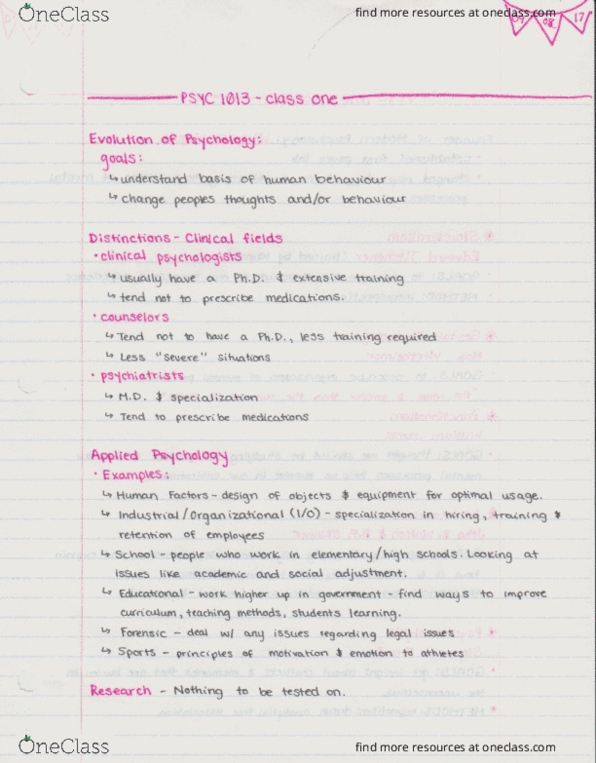 OneClass
find more resources at oneclass.com
09 08 17
PSYC 1013 - class one
Evolution of Psychology:
goals:
↳ understand basis of human behaviour
↳ change peoples thoughts and/or behaviour
Distinctions - Clinical fields
• clinical psychologists
↳ usually have a Ph.D. & extensive training
↳ tend not to prescribe medications.
• counselors
↳ Tend not to have a Ph.D., less training required
↳ Less "severe" situations
• psychiatrists
↳ M.D. & specialization
↳ Tend to prescribe medications
Applied Psychology
• Examples:
↳ Human Factors - design of objects & equipment for optimal usage.
↳ Industrial/Organizational (I/O) - specialization in hiring, training &
retention of employees
↳ School - people who work in elementary/high schools. Looking at
issues like academic and social adjustment.
↳ Educational - work higher up in government - find ways to improve
curriculum, teaching methods, students learning.
↳ Forensic - deal w/ any issues regarding legal issues
↳ Sports - principles of motivation & emotion to athletes
Research - Nothing to be tested on.
OneClass
find more resources at oneclass.com